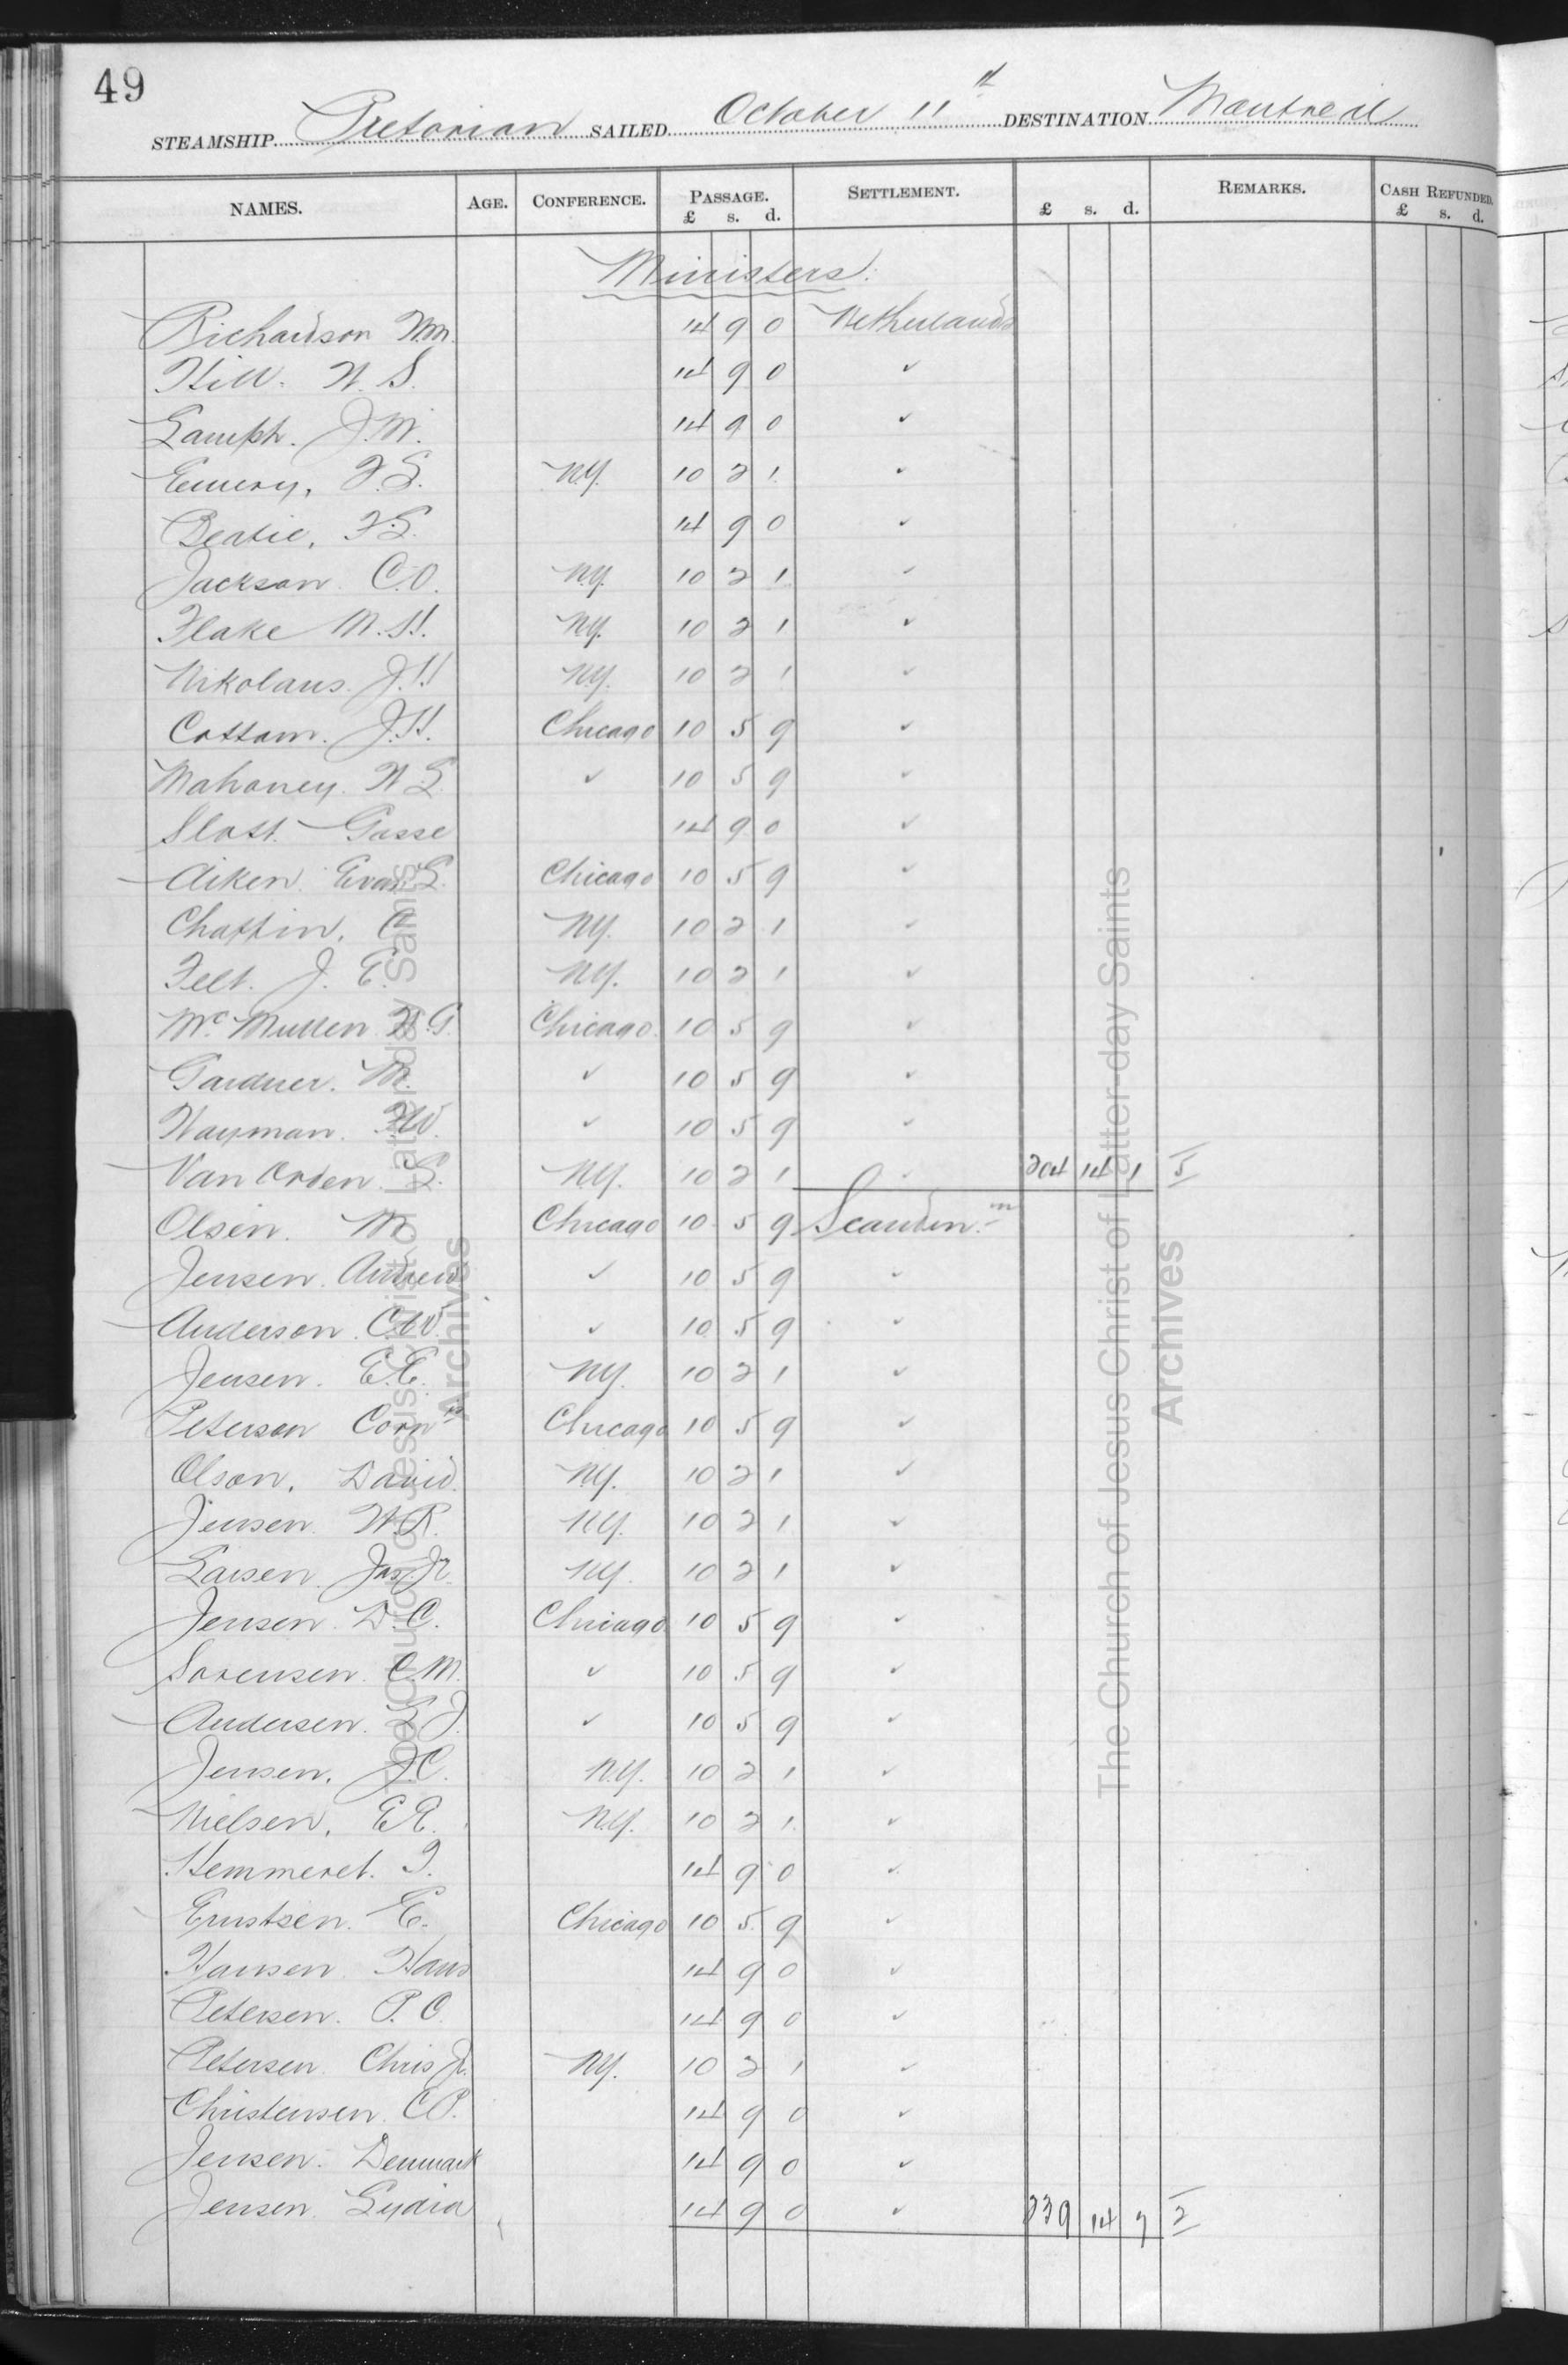 49
STEAMSHIP Pretorian SAILED October 11th DESTINATION Montreal
NAMES. AGE. CONFERENCE. PASSAGE. £ s. d. SETTLEMENT. £ s. d. REMARKS. CASH REFUNDED. £ s. d.
Ministers.
Richardson Wm. 14 9 0 Netherlands
Hill. W. S. 14 9 0 ✓
Lamph. J. M. 14 9 0 ✓
Emery, F. L. N.Y. 10 2 1 ✓
Beatie, F. L. 14 9 0 ✓
Jackson. C. O. N.Y. 10 2 1 ✓
Flake M. H. N.Y. 10 2 1 ✓
Nikolaus. J. H. N.Y. 10 2 1 ✓
Cottam. J. H. Chicago 10 5 9 ✓
Mahoney. W. L. ✓ 10 5 9 ✓
Slott. Gasse 14 9 0 ✓
Aiken. Evan L. Chicago 10 5 9 ✓
Chaffin. A N.Y. 10 2 1 ✓
Felt. J. E. N.Y. 10 2 1 ✓
Mc Mullen W. G. Chicago 10 5 9 ✓
Gardner. M. ✓ 10 5 9 ✓
Wayman. F. W. ✓ 10 5 9 ✓
Van Orden. L. N.Y. 10 2 1 ✓ 204 14 1 I 5
Olsen. M Chicago 10 5 9 Scandin.n
Jensen. Andrew ✓ 10 5 9 ✓
Anderson. C. W. ✓ 10 5 9 ✓
Jensen. E. E. N.Y. 10 2 1 ✓
Peterson Corns Chicago 10 5 9 ✓
Olson, David. N.Y. 10 2 1 ✓
Jensen. W. R. N.Y. 10 2 1 ✓
Larsen. Jas. Jr. N.Y. 10 2 1 ✓
Jensen. D. C. Chicago 10 5 9 ✓
Sorensen. C. M. ✓ 10 5 9 ✓
Andersen. L. J. ✓ 10 5 9 ✓
Jensen, J. C. N.Y. 10 2 1 ✓
Nielsen, E. E. N.Y. 10 2 1 ✓
Hemmeret. I. 14 9 0 ✓
Ernstsen. E. Chicago 10 5 9 ✓
Hansen. Hans 14 9 0 ✓
Petersen. P. O. 14 9 0 ✓
Petersen. Chris Jr. N.Y. 10 2 1 ✓
Christensen. C. P. 14 9 0 ✓
Jensen. Denmark 14 9 0 ✓
Jensen. Lydia 14 9 0 ✓ 239 14 7 I 2
The Church of Jesus Christ of Latter-day Saints
Archives
The Church of Jesus Christ of Latter-day Saints
Archives